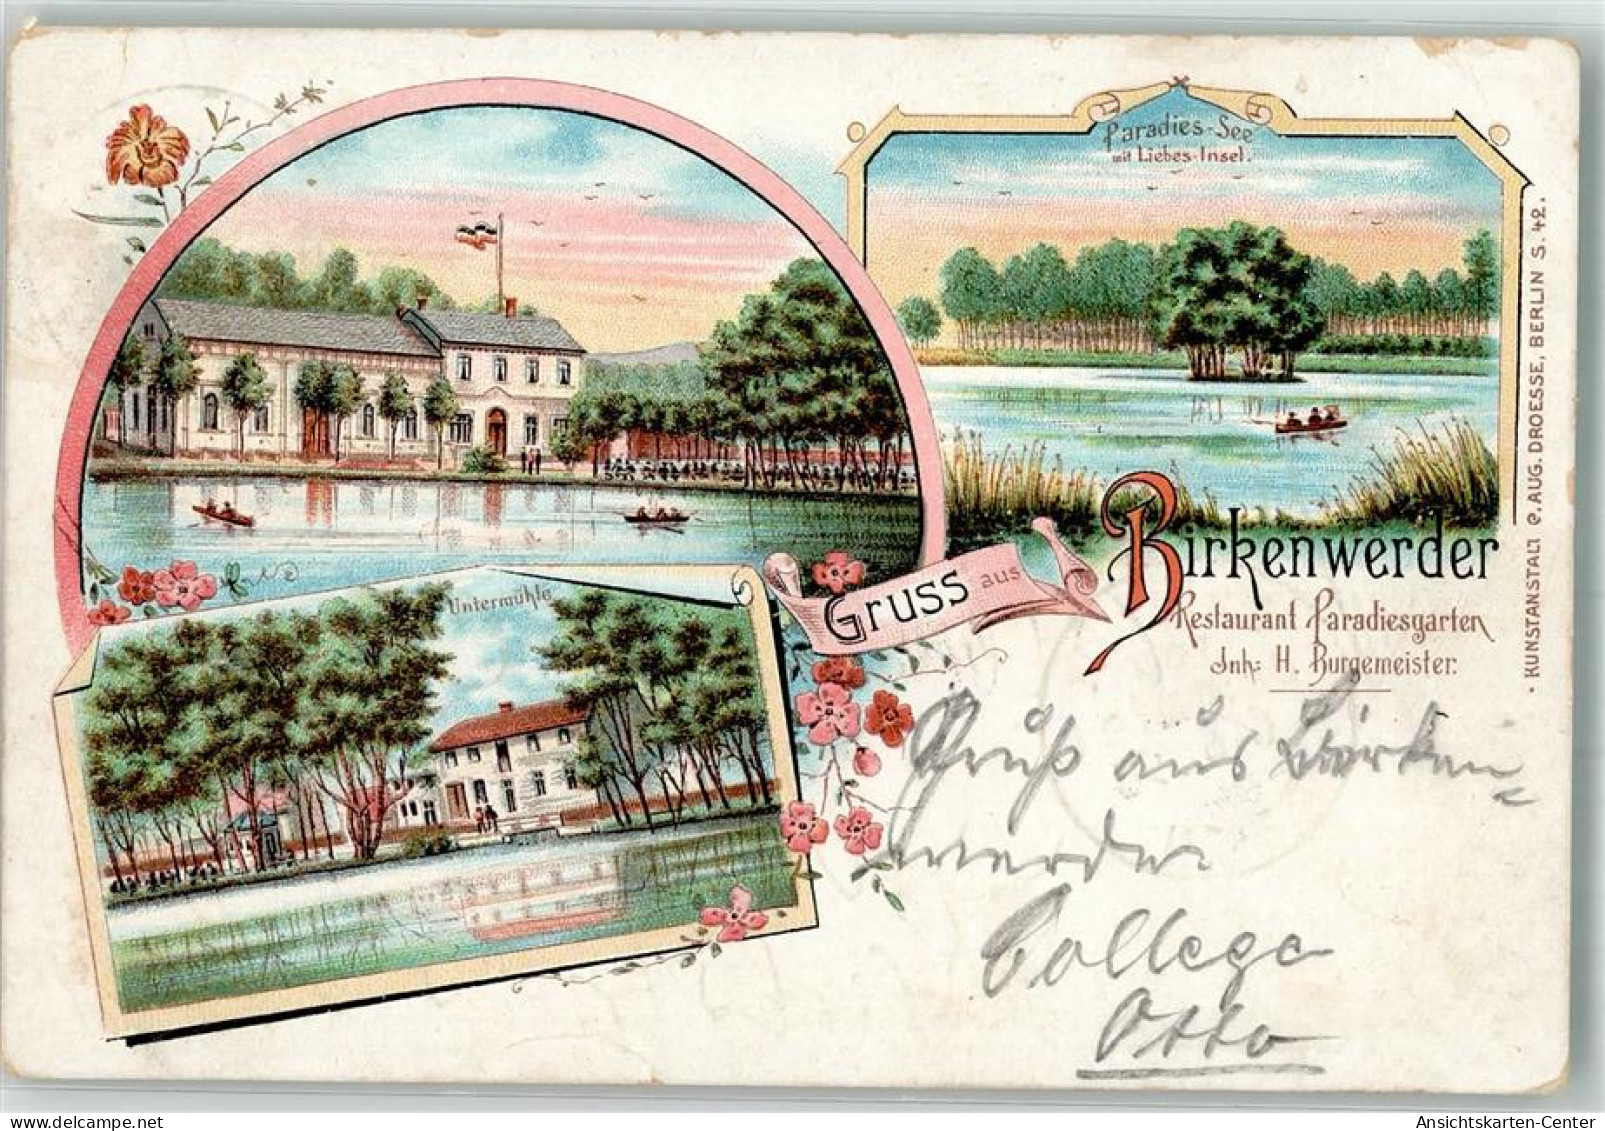 Paradies-See
mit Liebes-Insel.
Untermühle
Gruss aus
Birkenwerder
Restaurant Paradiesgarten
Inh: H. Burgemeister.
• KUNSTANSTALT C. AUG. DROESSE, BERLIN S. 42.
Gruß aus Birken-
werder
College
Otto
Ansichtskarten-Center